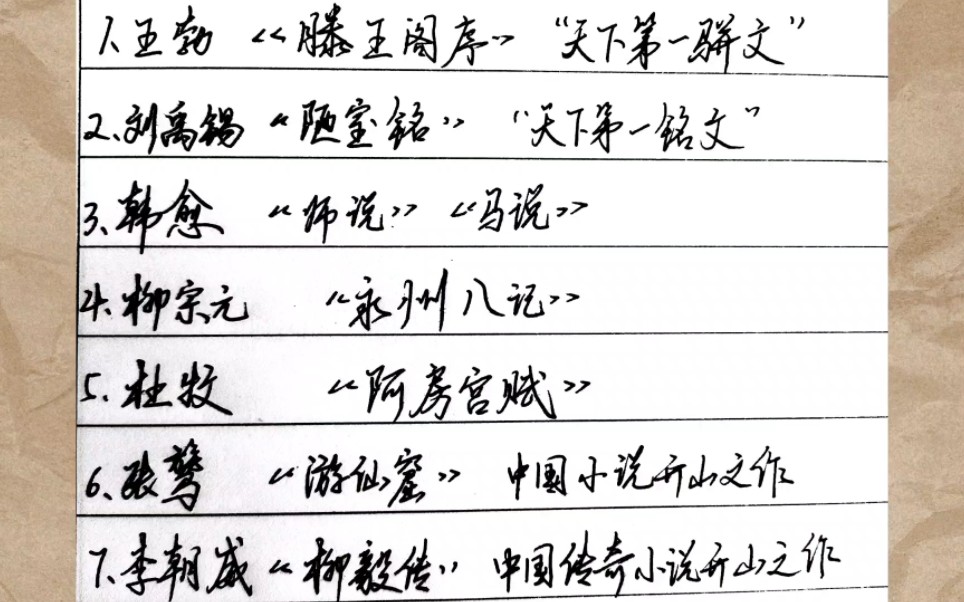 1.王勃 《滕王阁序》 “天下第一骈文”
2.刘禹锡 《陋室铭》 “天下第一铭文”
3.韩愈 《师说》 《马说》
4.柳宗元 《永州八记》
5.杜牧 《阿房宫赋》
6.张鷟 《游仙窟》 中国小说开山之作
7.李朝威 《柳毅传》 中国传奇小说开山之作